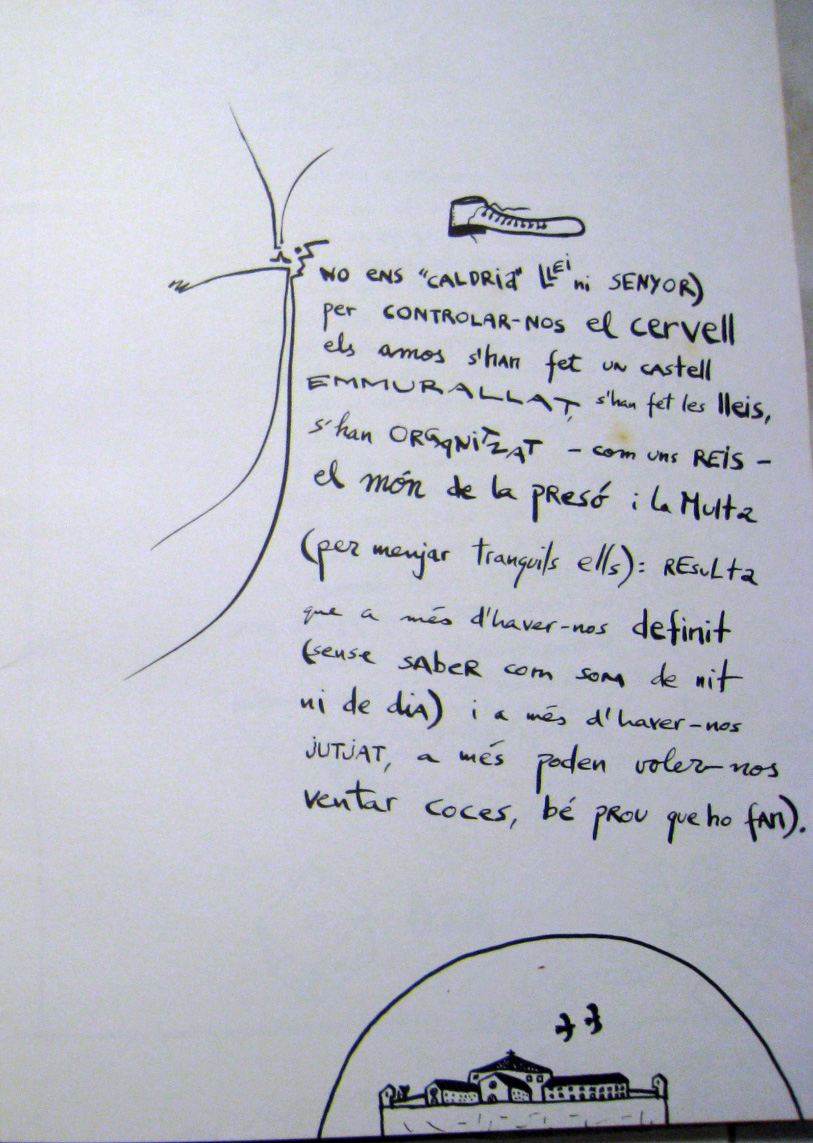 NO ENS "CALDRIA" LLEI ni SENYOR)
per CONTROLAR-NOS el cervell
els amos s'han fet UN castell
EMMURALLAT, s'han fet les lleis,
s'han ORGANITZAT - com uns REIS -
el món de la PResó i la Multa
(per menjar tranquils ells): REsuLta
que a més d'haver-nos definit
(sense SABER com som de nit
ni de dia) i a més d'haver-nos
JUTJAT, a més poden voler-nos
ventar coces, bé PROU que ho fan).